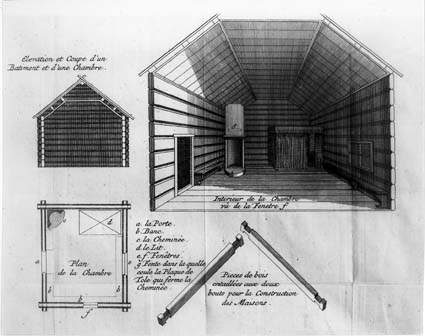 Elevation et Coupe d'un
Batiment et d'une Chambre.
Interieur de la Chambre
vû de la Fenetre f
a. la Porte.
b. Banc.
c. la Cheminée.
d. le Lit.
e. f. Fenêtres.
g. Fente dans la quelle
coule la Plaque de
Tole qui ferme la
Cheminée
Plan
de la Chambre
a
c
d
e
b
b
f
Pieces de bois
entaillées aux deux
bouts pour la Construction
des Maisons.